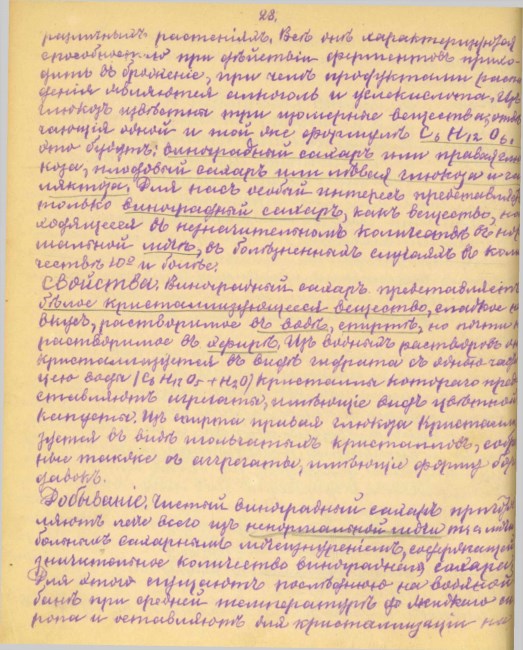 23.
различныхъ растеніяхъ. Всѣ онѣ характеризуются
способностью при дѣйствіи ферментовъ прихо-
дить въ броженіе, при чемъ продуктами разло-
женія являются алкоголь и углекислота. Изъ
глюкозъ извѣстны три изомерныя вещества, отвѣ-
чающія одной и той же формулѣ C6 H12 O6.
Это будутъ: виноградный сахаръ или правая глю-
коза, плодовый сахаръ или лѣвая глюкоза и га-
лактоза. Для насъ особый интересъ представляетъ
только виноградный сахаръ, какъ вещество, на-
ходящееся въ незначительномъ количествѣ въ нор-
мальной мочѣ, въ болѣзненныхъ случаяхъ въ коли-
чествѣ 10% и болѣе.
Свойства. Виноградный сахаръ представляетъ
бѣлое кристаллизующееся вещество, сладкое на
вкусъ, растворимое въ водѣ, спиртѣ, но почти не-
растворимое въ эфирѣ. Изъ водныхъ растворовъ онъ
кристаллизуется въ видѣ гидрата съ одной части-
цею воды (C6 H12 O6 + H2O) кристаллы котораго пред-
ставляютъ агрегаты, имѣющіе видъ цвѣтной
капусты. Изъ спирта правая глюкоза кристалли-
зуется въ видѣ игольчатыхъ кристалловъ, собран-
ные также въ аггрегаты, имѣющіе форму боро-
давокъ.
Добываніе. Чистый виноградный сахаръ приготов-
ляютъ легче всего изъ ненормальной мочи т.е. мочи
больныхъ сахарнымъ мочеизнуреніемъ, содержащей
значительное количество винограднаго сахара.
Для этого сгущаютъ послѣднюю на водяной
банѣ при средней температурѣ до жидкаго си-
ропа и оставляютъ для кристаллизаціи на